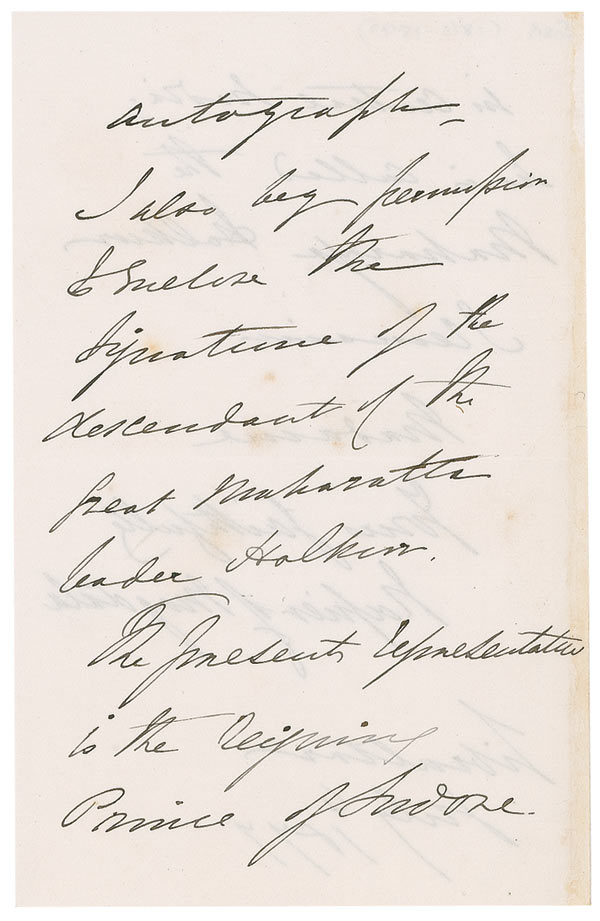 autograph –
I also beg permission
to enclose the
signature of the
descendant of the
great Maharatta
leader Holkar.
The present representative
is the reigning
Prince of Indore.